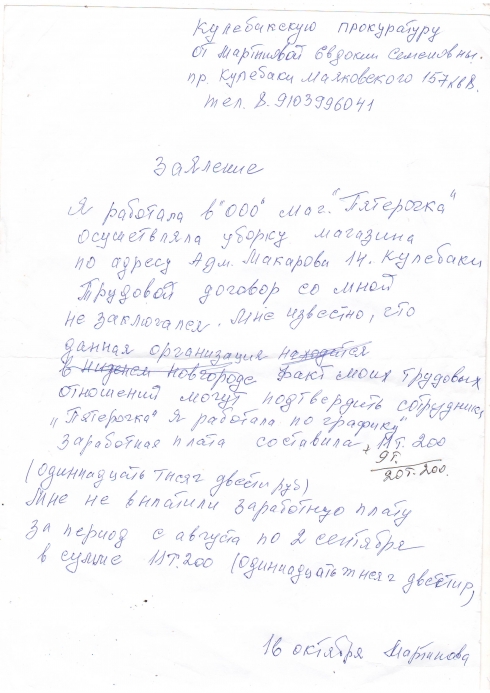 Кулебакскую прокуратуру
от Мартиновой Евдокии Семеновны.
пр. Кулебаки Маяковского 157 кв 8.
тел. 8.9103996041
Заяление
Я работала в "ООО" маг. "Пятерочка"
осуществляла уборку магазина
по адресу Адм. Макарова 14. Кулебаки
Трудовой договор со мной
не заключался. Мне известно, что
данная организация находится
в нижнем новгороде Факт моих трудовых
отношений могут подтвердить сотрудники
"Пятерочка" Я работала по графику
Заработная плата составила 11т. 200
+ 9т.
20т. 200.
(одиннадцать тысяч двести руб)
Мне не выплатили заработную плату
за период с августа по 2 сентября
в сумме 11т.200 (одиннадцать тысяч двести р)
16 октября Мартинова